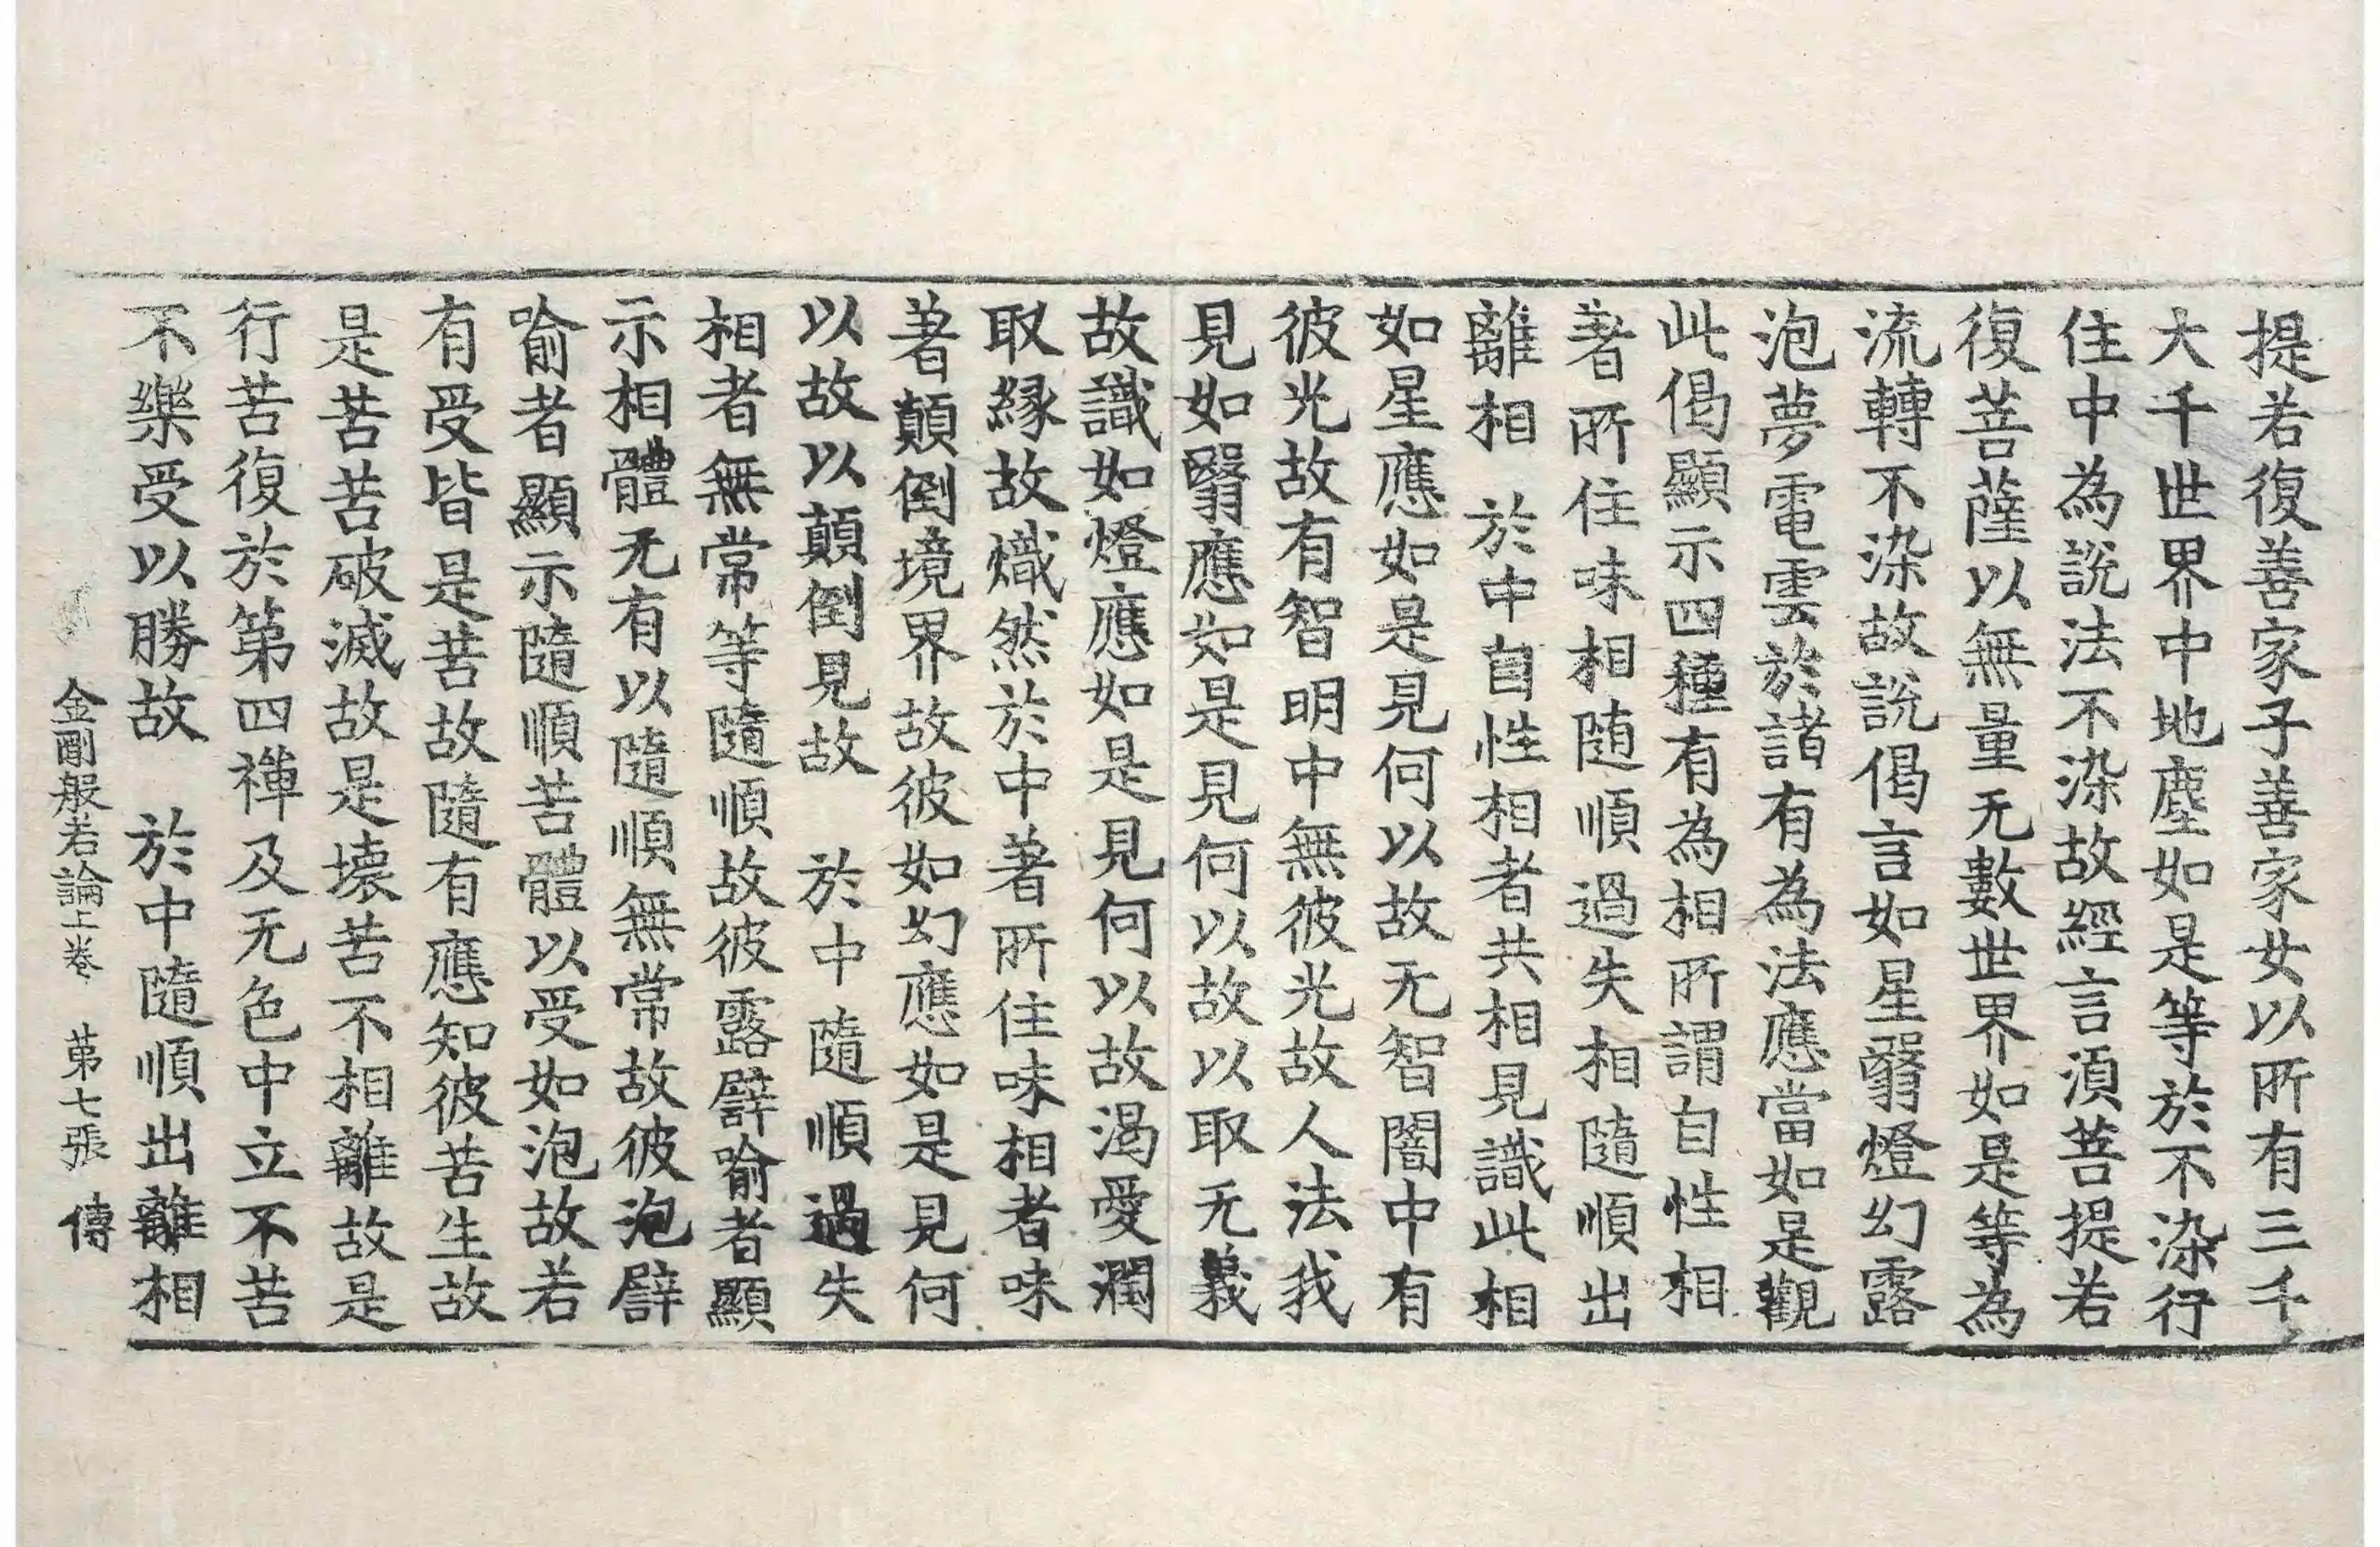 提若復善家子善家女以所有三千
大千世界中地塵如是等於不染行
住中為說法不染故經言湏菩提若
復菩薩以無量无數世界如是等為
流轉不染故說偈言如星翳燈幻露
泡夢電雲於諸有為法應當如是觀
此偈顯示四種有為相所謂自性相
著所住味相随順過失相隨順出
離相　於中自性相者共相見識此相
如星應如是見何以故无智闇中有
彼光故有智明中無彼光故人法我
見如翳應如是見何以故以取无義
故識如燈應如是見何以故渴愛潤
取縁故熾然於中著所住味相者味
著顛倒境界故彼如幻應如是見何
以故以顛倒見故　於中隨順過失
相者無常等隨順故彼露譬喻者顯
示相體无有以隨順無常故彼泡譬
喻者顯示隨順苦體以受如泡故若
有受皆是苦故隨有應知彼苦生故
是苦苦破滅故是壊苦不相離故是
行苦復於第四禪及无色中立不苦
不樂受以勝故　於中隨順出離相
金剛般若論上卷　第七張　傳